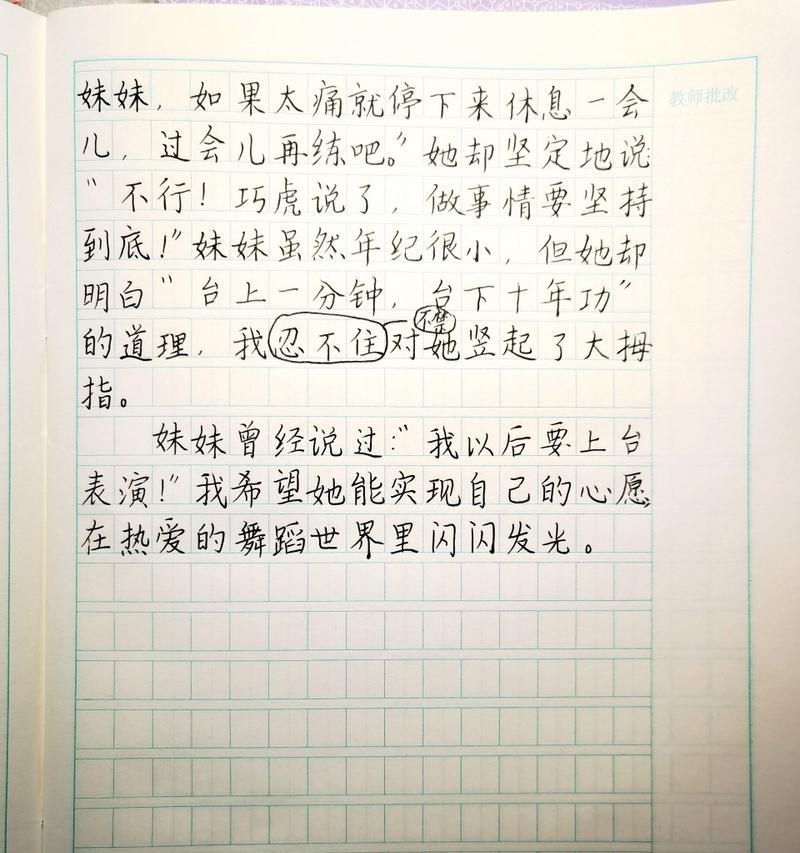 教师批改
妹妹，如果太痛就停下来休息一会
儿，过会儿再练吧。”她却坚定地说：
“不行！巧虎说了，做事情要坚持
到底！”妹妹虽然年纪很小，但她却
明白“台上一分钟，台下十年功”
的道理，我忍不住对她竖起了大拇
指。
妹妹曾经说过：“我以后要上台
表演！”我希望她能实现自己的心愿，
在热爱的舞蹈世界里闪闪发光。